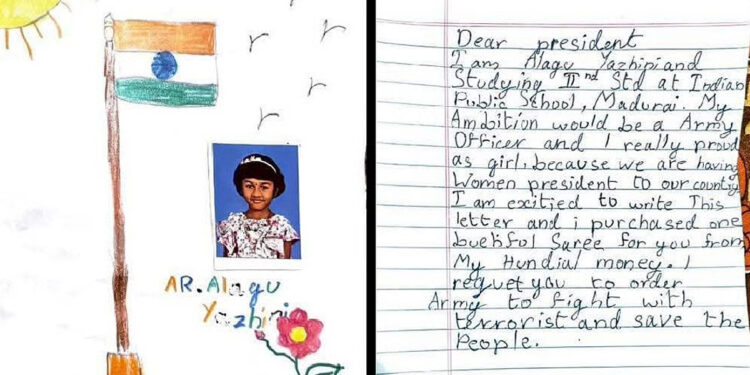 AR. Alagu
Yazhini
Dear president
I am Alagu Yazhini and
Studying IInd Std at Indian
Public School, Madurai. My
Ambition would be a Army
Officer and I really proud
as girl, because we are having
Women president to our country
I am exitied to write This
letter and i purchased one
Saree for you from
My Hundial money. I
requet you to order
Army to fight with
terrorist and save the
People.